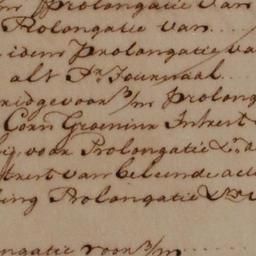 Prolongatie van
Prolongatie van
idem Prolongatie va
als Pr. Journaal
voor 3/m Prolong
Corns Groeninx Intrest
voor Prolongatie &ra. a
van beleende acti
ing Prolongatie &ra
ngatie voor 3/m